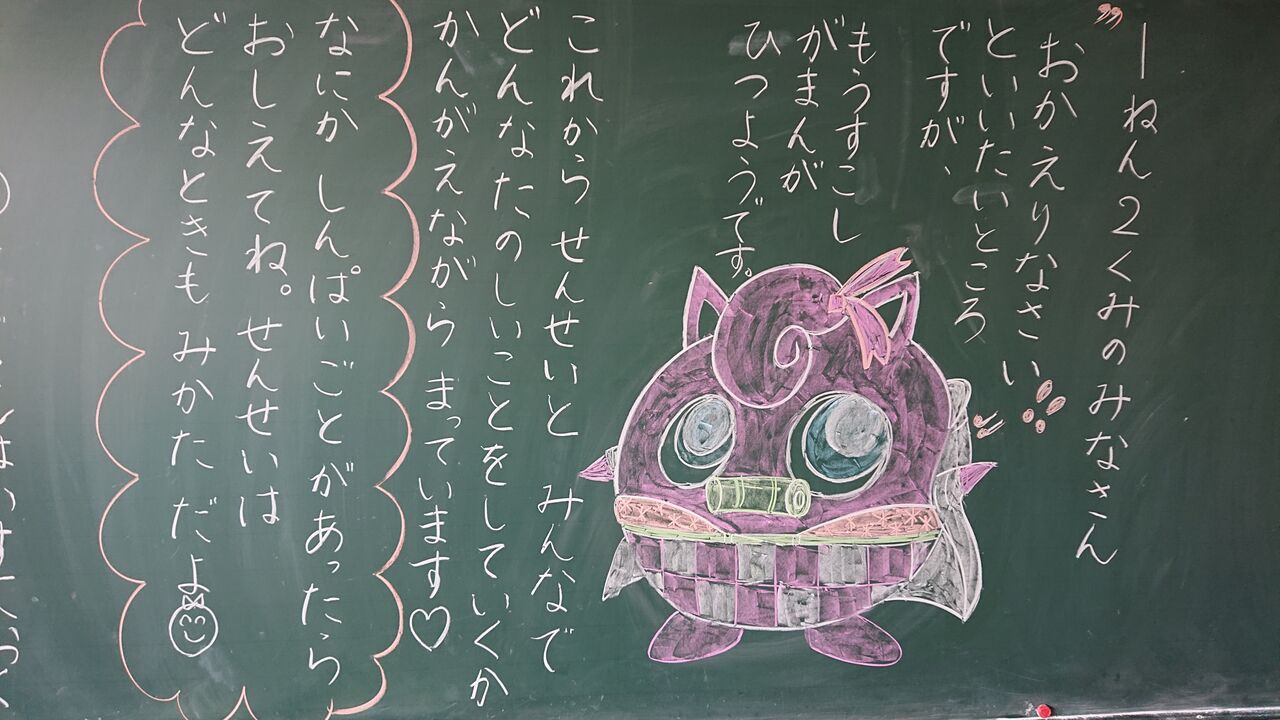 1ねん2くみのみなさん
おかえりなさい
といいたいところ
ですが、
もうすこし
がまんが
ひつようです。
これからせんせいと みんなで
どんなたのしいことをしていくか
かんがえながら まっています♡
なにか しんぱいごとがあったら
おしえてね。せんせいは
どんなときも みかただよ